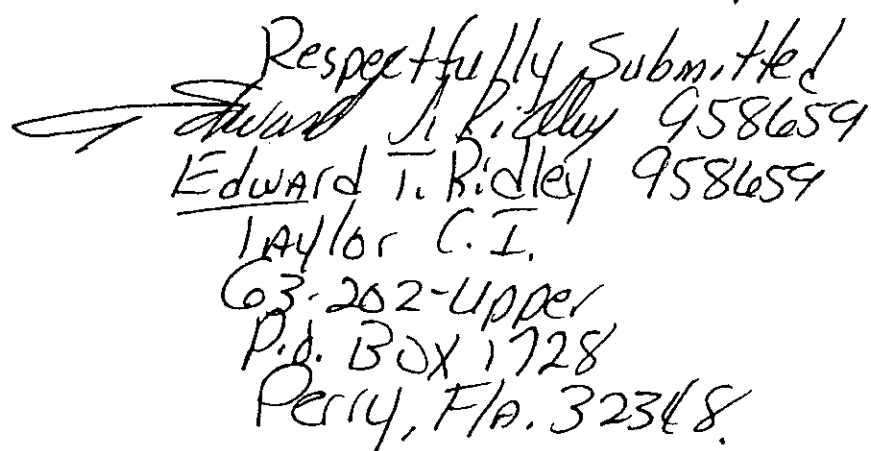 Respectfully Submitted
Edward T. Ridley 958659
Edward T. Ridley 958659
Taylor C.I.
G3-202-Upper
P.O. Box 1728
Perry, Fla. 32348.